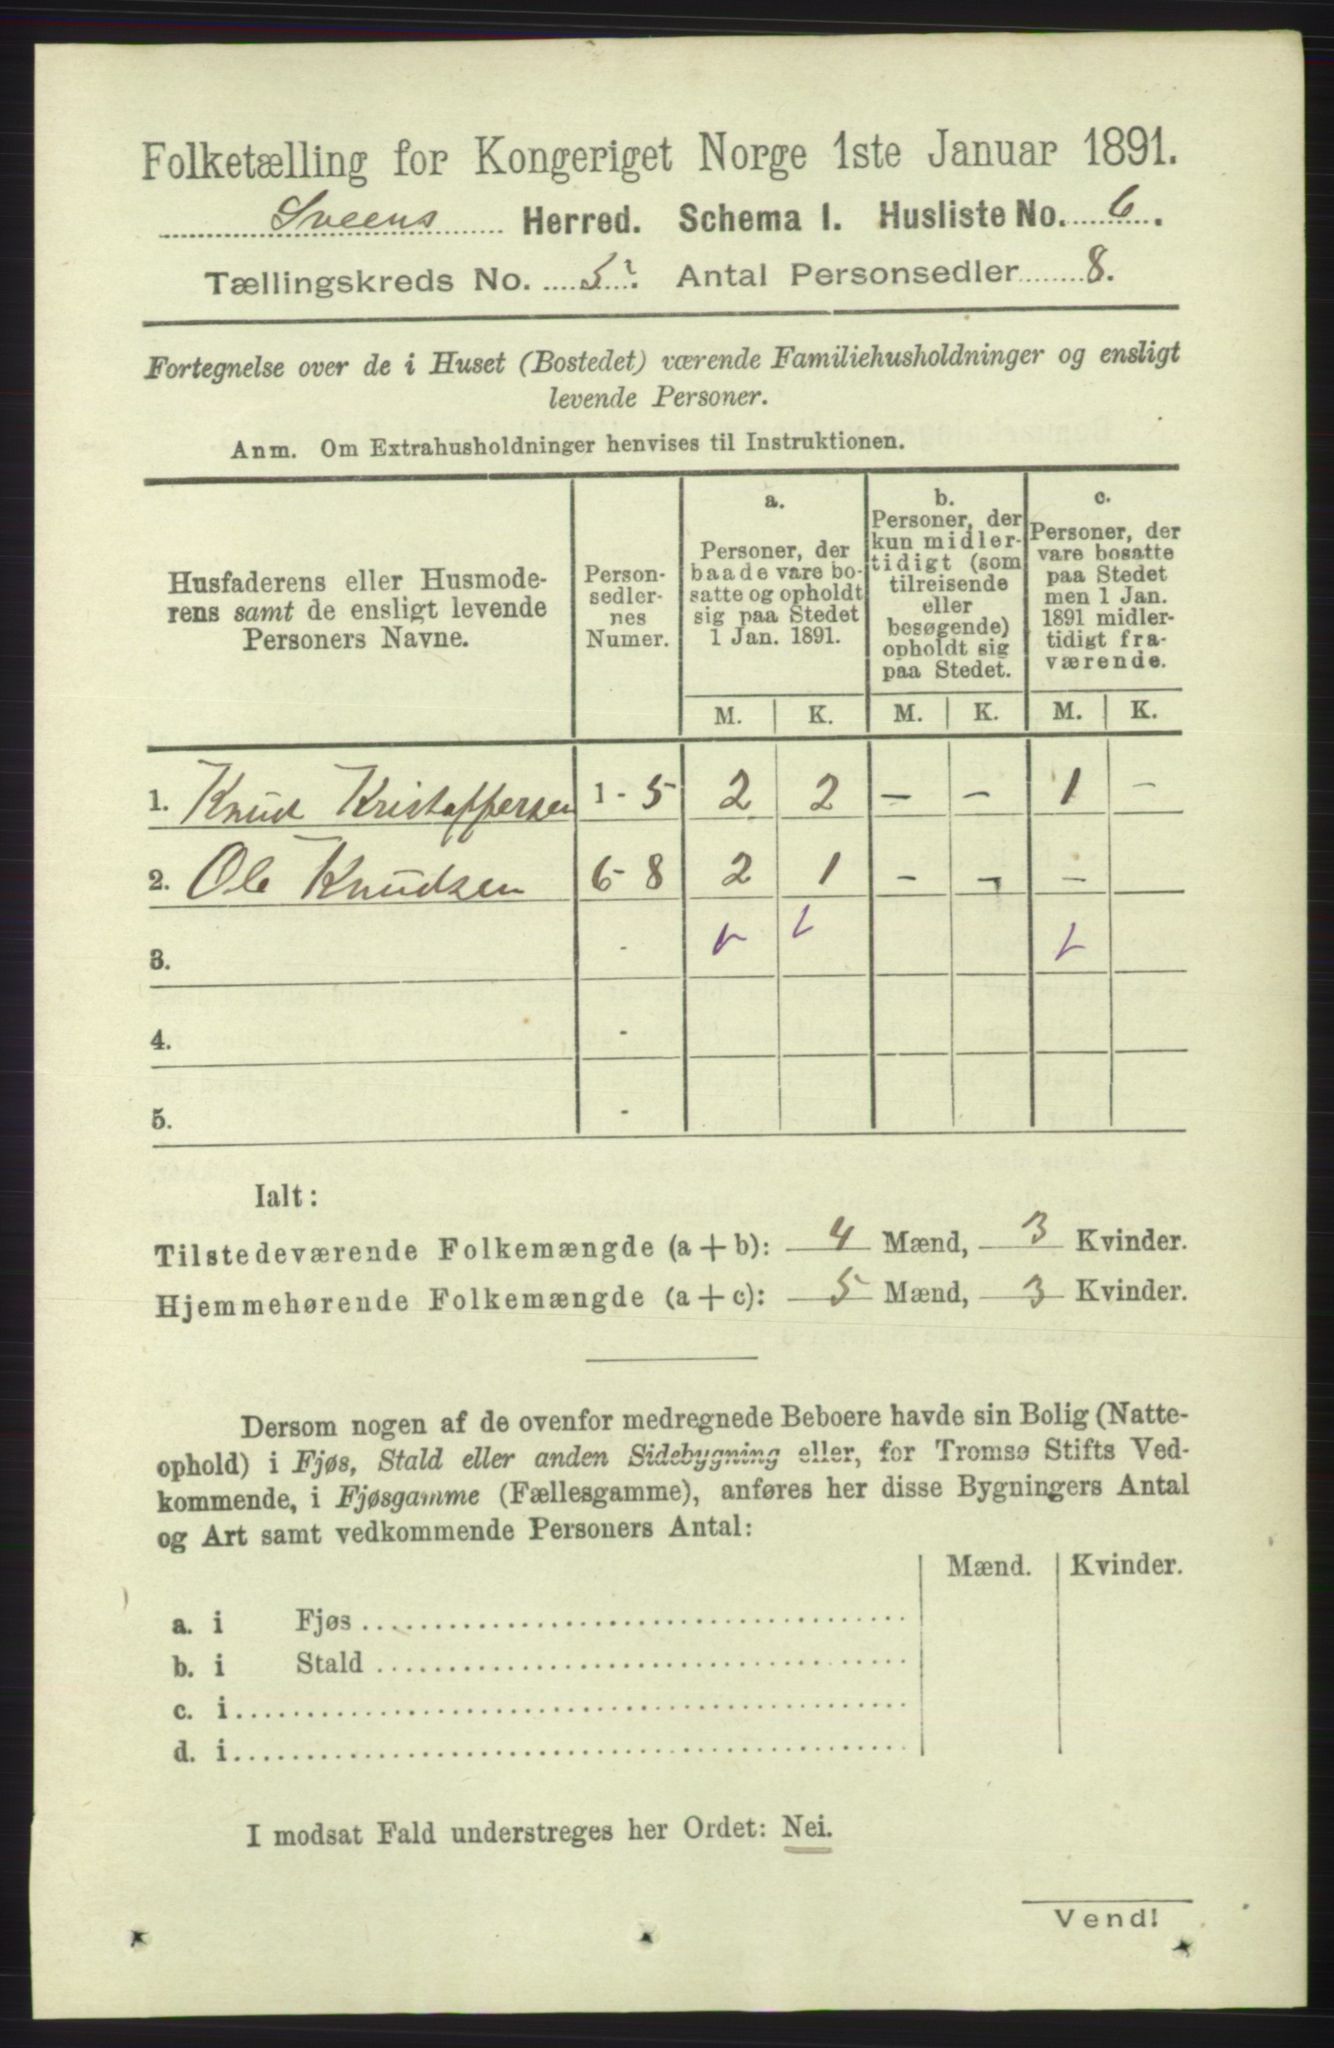 Folketælling for Kongeriget Norge 1ste Januar 1891.
Sveens Herred. Schema I. Husliste No. 6.
Tællingskreds No. 5. Antal Personsedler 8.
Fortegnelse over de i Huset (Bostedet) værende Familiehusholdninger og ensligt
levende Personer.
Anm. Om Extrahusholdninger henvises til Instruktionen.
Husfaderens eller Husmode-
rens samt de ensligt levende
Personers Navne.
Person-
sedler-
nes
Numer.
a.
Personer, der
baade vare bo-
satte og opholdt
sig paa Stedet
1 Jan. 1891.
b.
Personer, der
kun midler-
tidigt (som
tilreisende
eller
besøgende)
opholdt sig
paa Stedet.
c.
Personer, der
vare bosatte
paa Stedet
men 1 Jan.
1891 midler-
tidigt fra-
værende.
M. K. M. K. M. K.
1. Knud Kristoffersen 1 - 5 2 2 - - 1 -
2. Ole Knudsen 6 - 8 2 1 - - -
3. -
4. -
5. -
Ialt:
Tilstedeværende Folkemængde (a + b): 4 Mænd, 3 Kvinder.
Hjemmehørende Folkemængde (a + c): 5 Mænd, 3 Kvinder.
Dersom nogen af de ovenfor medregnede Beboere havde sin Bolig (Natte-
ophold) i Fjøs, Stald eller anden Sidebygning eller, for Tromsø Stifts Ved-
kommende, i Fjøsgamme (Fællesgamme), anføres her disse Bygningers Antal
og Art samt vedkommende Personers Antal:
Mænd. Kvinder.
a. i Fjøs
b. i Stald
c. i
d. i
I modsat Fald understreges her Ordet: Nei.
Vend!